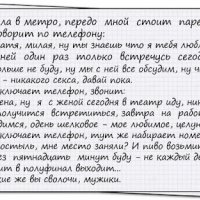 ла в метро, передо мной стоит паре
оворит по телефону:
атя, милая, ну ты знаешь что я тебя любл
ней один раз только встречусь сегод
ольше не буду, ну мы с ней все обсудим, ну ч
- никакого секса, давай пока.
ключает телефон, звонит:
ена, ну я с женой сегодня в театр иду, ник
получится встретиться, завтра на рабо
димся, одень шелковое - мое любимое, целую
ключает телефон, тут же набирает номе
остыль, мне место заняли? И пиво возьми
ез пятнадцать минут буду - не каждый де
ит в полуфинал выходит...
ие же вы сволочи, мужики.